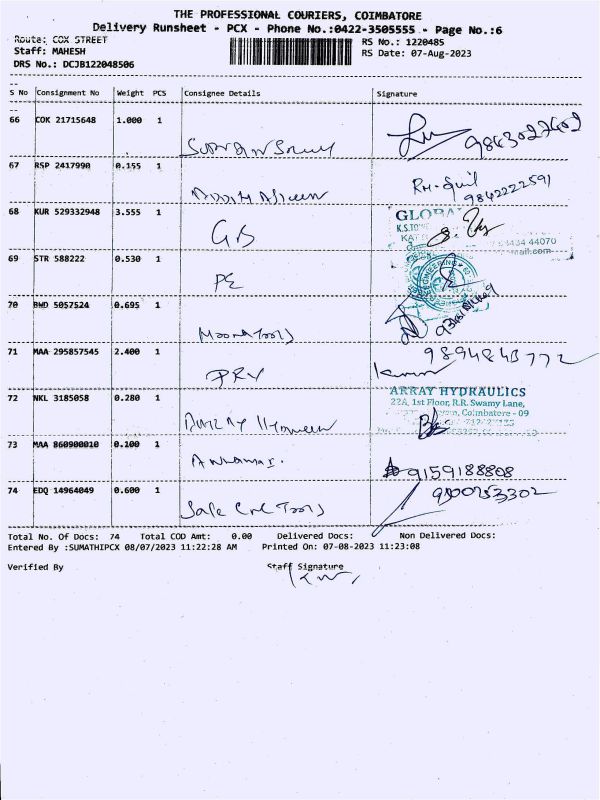 THE PROFESSIONAL COURIERS, COIMBATORE
Delivery Runsheet - PCX - Phone No.:0422-3505555 - Page No.:6
Route: COX STREET
RS No.: 1220485
Staff: MAHESH
RS Date: 07-Aug-2023
DRS No.: DCJB122048506
S No Consignment No Weight PCS Consignee Details Signature
66 COK 21715648 1.000 1
67 RSP 2417990 0.155 1
9842222591
68 KUR 529332948 3.555 1
GB
GLOBA
K.S.TOWE
44070
mail.com
69 STR 588222 0.530 1
PE
ENGINEERING
70 BWD 5057524 0.695 1
Moona Tools
71 MAA 295857545 2.400 1
PRV
72 NKL 3185058 0.280 1
ARRAY HYDRAULICS
22A, 1st Floor, R.R. Swamy Lane,
Coimbatore - 09
73 MAA 860900010 0.100 1
Annamai.
9159188808
74 EDQ 14964049 0.600 1
Safe Cne Tools
Total No. Of Docs: 74 Total COD Amt: 0.00 Delivered Docs: Non Delivered Docs:
Entered By :SUMATHIPCX 08/07/2023 11:22:28 AM Printed On: 07-08-2023 11:23:08
Verified By Staff Signature